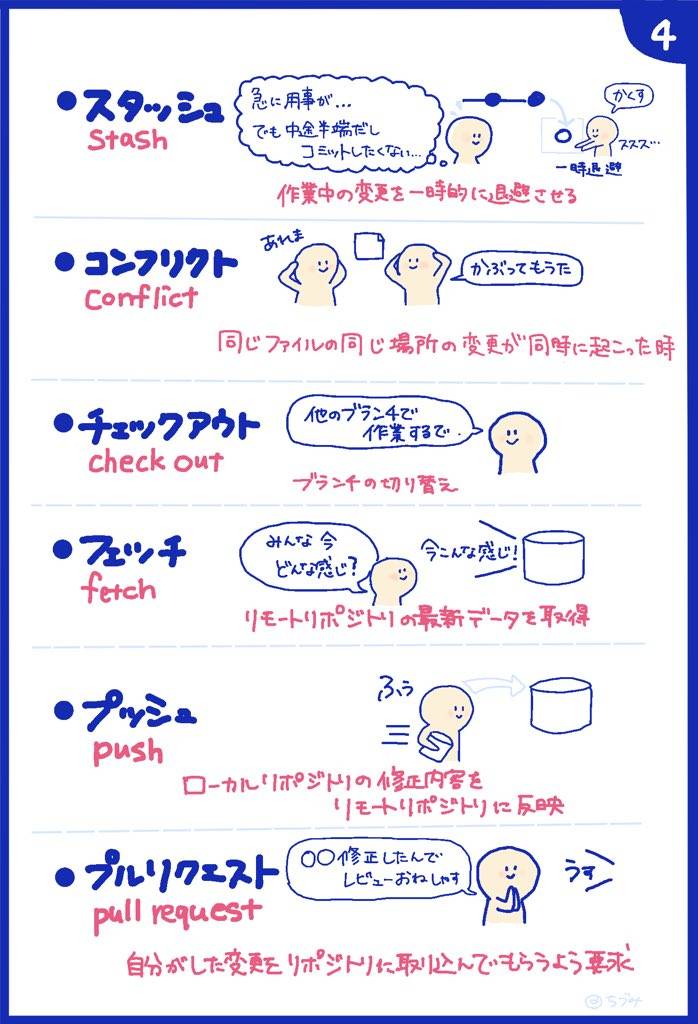 4
●スタッシュ
stash
急に用事が...
でも中途半端だし
コミットしたくない...
かくす
ススス...
一時退避
作業中の変更を一時的に退避させる
●コンフリクト
conflict
あれま
かぶってもうた
同じファイルの同じ場所の変更が同時に起こった時
●チェックアウト
check out
他のブランチで
作業するで.
ブランチの切り替え
●フェッチ
fetch
みんな今
どんな感じ?
今こんな感じ!
リモートリポジトリの最新データを取得
●プッシュ
push
ふぅ
ローカルリポジトリの修正内容を
リモートリポジトリに反映
●プルリクエスト
pull request
○○修正したんで
レビューおねしゃす
うす
自分がした変更をリポジトリに取り込んでもらうよう要求
@ちづみ